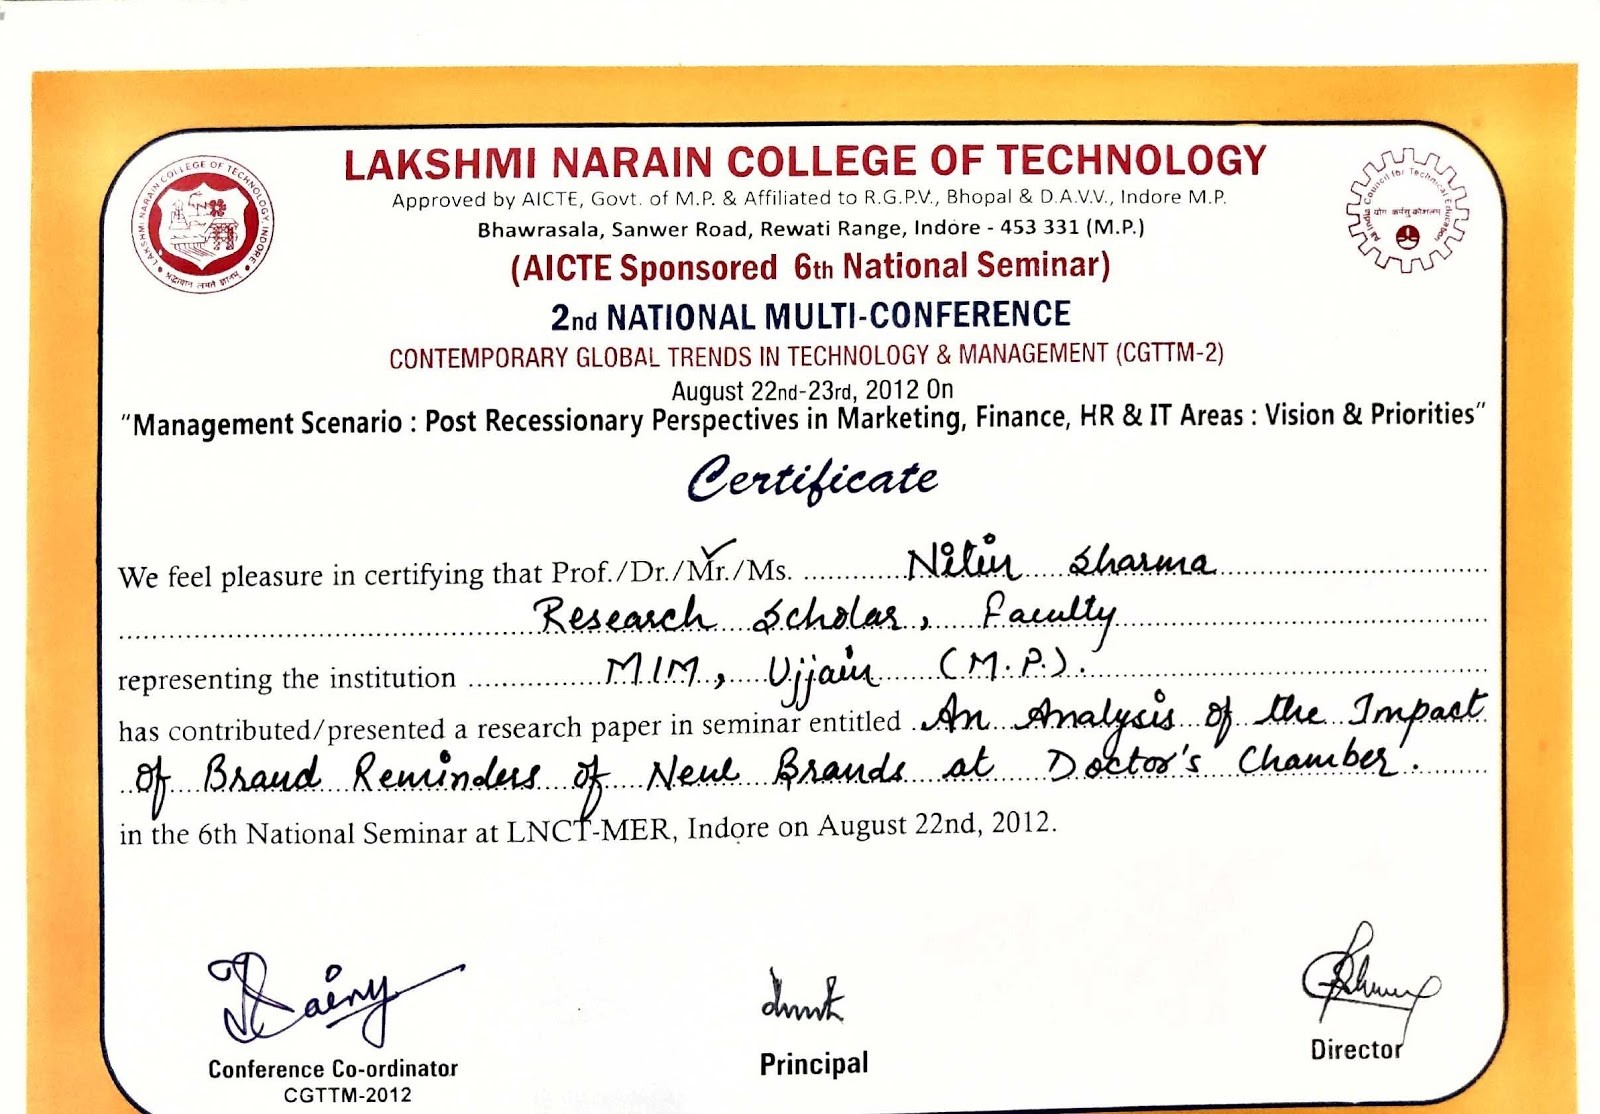 LAKSHMI NARAIN COLLEGE OF TECHNOLOGY
Approved by AICTE, Govt. of M.P. & Affiliated to R.G.P.V., Bhopal & D.A.V.V., Indore M.P.
Bhawrasala, Sanwer Road, Rewati Range, Indore - 453 331 (M.P.)
(AICTE Sponsored 6th National Seminar)
2nd NATIONAL MULTI-CONFERENCE
CONTEMPORARY GLOBAL TRENDS IN TECHNOLOGY & MANAGEMENT (CGTTM-2)
August 22nd-23rd, 2012 On
"Management Scenario : Post Recessionary Perspectives in Marketing, Finance, HR & IT Areas : Vision & Priorities"
LAKSHMI NARAIN COLLEGE OF TECHNOLOGY, INDORE
All India Council for Technical Education
Certificate
We feel pleasure in certifying that Prof./Dr./Mr./Ms. Nitin Sharma
Research Scholar, Faculty
representing the institution MIM, Ujjain (M.P.).
has contributed/presented a research paper in seminar entitled An Analysis of the Impact
of Brand Reminders of New Brands at Doctor's Chamber.
in the 6th National Seminar at LNCT-MER, Indore on August 22nd, 2012.
Conference Co-ordinator
CGTTM-2012
Principal
Director